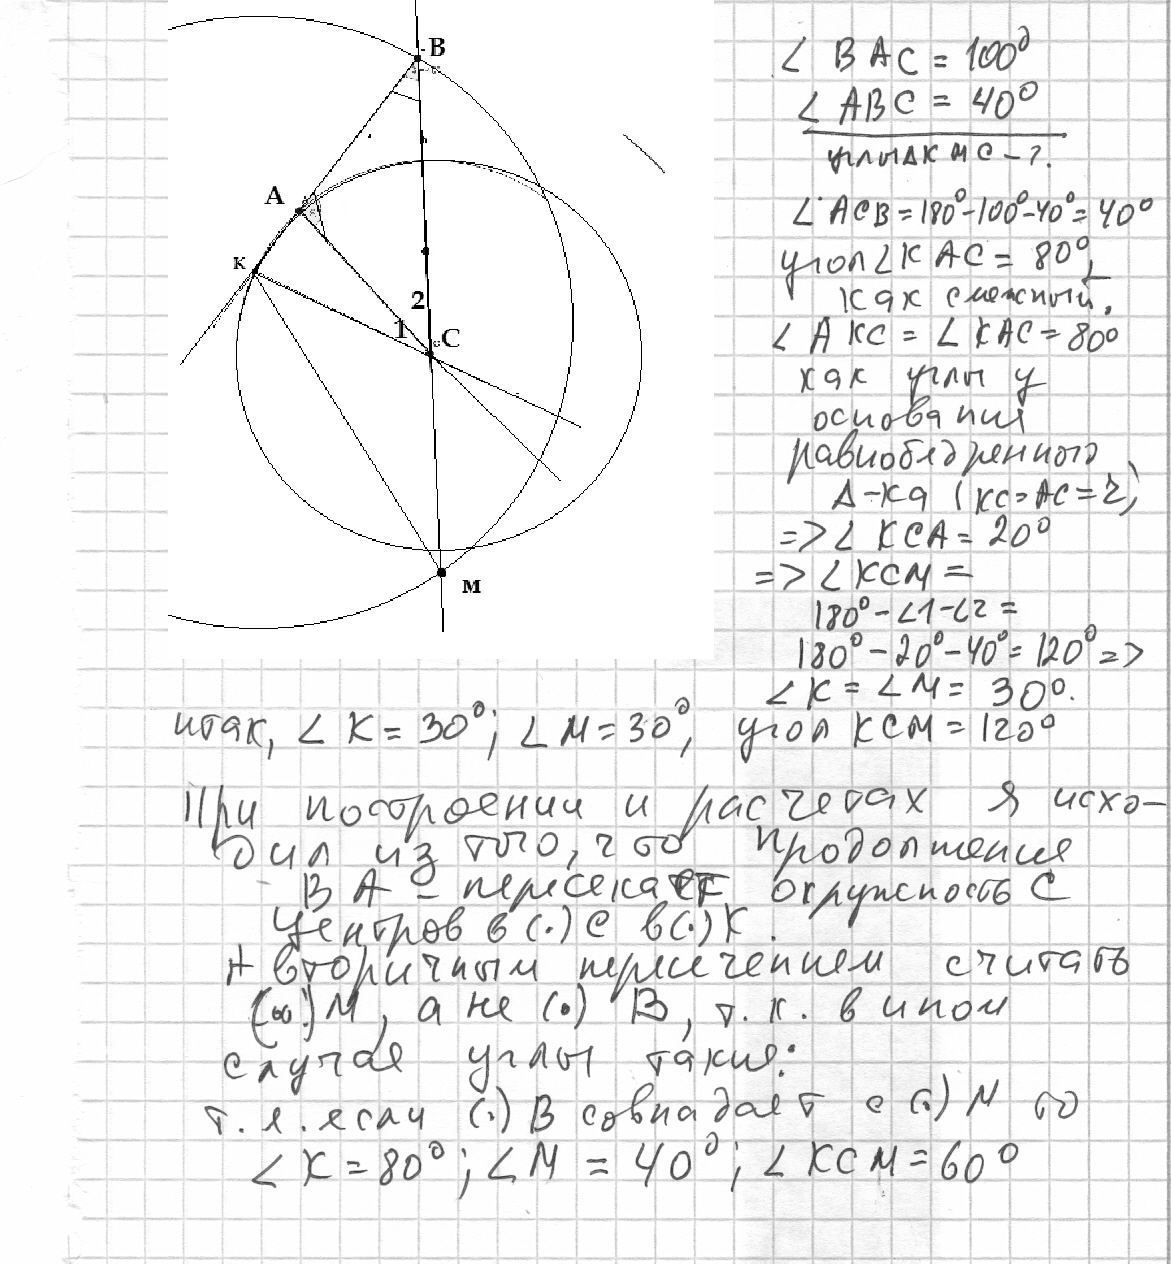 B
A
K
2
1
C
M
∠ BAC = 100°
∠ ABC = 40°
углы Δ KMC - ?
∠ ACB = 180° - 100° - 40° = 40°
угол ∠ KAC = 80°,
как смежный.
∠ AKC = ∠ KAC = 80°
как углы у
основания
равнобедренного
Δ-ка (KC = AC = r)
=> ∠ KCA = 20°
=> ∠ KCM =
180° - ∠1 - ∠2 =
180° - 20° - 40° = 120° =>
∠ K = ∠ M = 30°.
итак, ∠ K = 30°; ∠ M = 30°, угол KCM = 120°
При построении и расчетах я исхо-
дил из того, что продолжение
BA - пересекает окружность с
центров в (·) C в (·) K.
А вторичным пересечением считать
(·) M, а не (·) B, т.к. в ином
случае углы такие:
т.е. если (·) B совпадает с (·) M то
∠ K = 80°; ∠ M = 40°; ∠ KCM = 60°